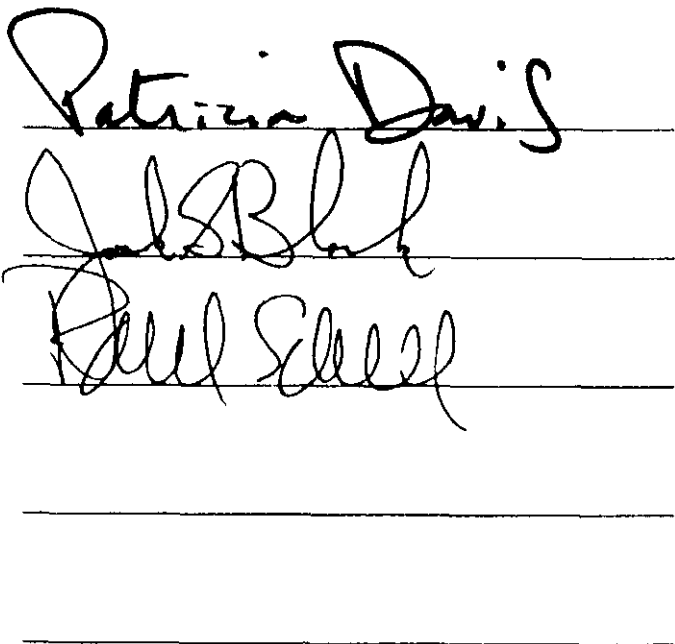 Patricia Davis
Jack S Black
Paul